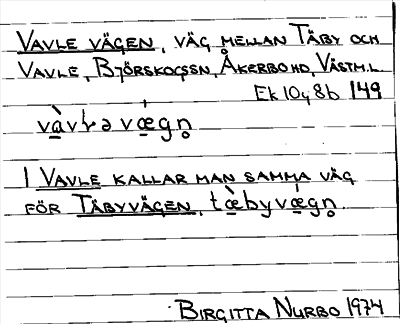 VAVLE VÄGEN, VÄG MELLAN TÄBY OCH
VAVLE, BJÖRSKOGSSN, ÅKERBO HD, VÄSTM.L.
Ek 10g 8b 149
I VAVLE KALLAR MAN SAMMA VÄG
FÖR TÄBYVÄGEN,
BIRGITTA NURBO 1974